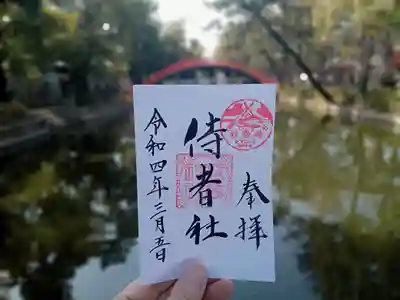 奉拝
侍者社
令和四年三月五日